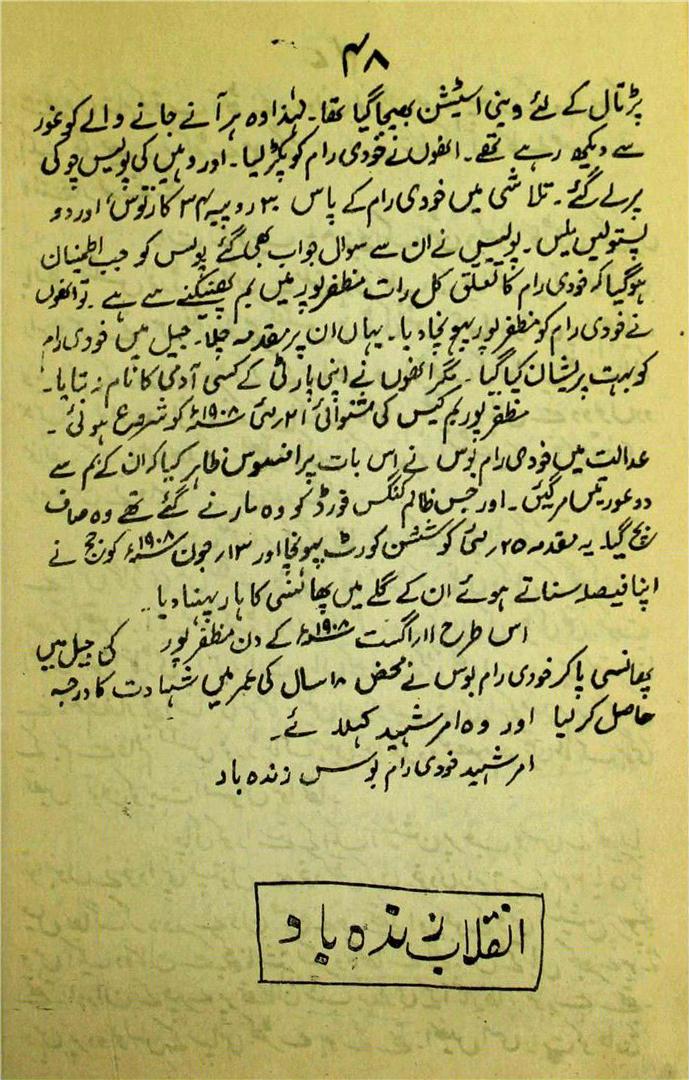 ۴۸
پڑتال کے لئے وینی اسٹیشن بھیجا گیا تھا۔ لہٰذا وہ ہر آنے جانے والے کو غور
سے دیکھ رہے تھے۔ انھوں نے خودی رام کو پکڑ لیا۔ اور وہیں کی پولیس چوکی
پر لے گئے۔ تلاشی میں خودی رام کے پاس ۳۰ روپیہ ۳۴ کارتوس، اور دو
پستولیں ملیں۔ پولیس نے ان سے سوال جواب بھی کئے پولیس کو جب اطمینان
ہوگیا کہ خودی رام کا تعلق کل رات مظفرپور میں بم پھینکنے سے ہے۔ تو انھوں
نے خودی رام کو مظفرپور پہونچا دیا۔ یہاں ان پر مقدمہ چلا۔ جیل میں خودی رام
کو بہت پریشان کیا گیا۔ مگر انھوں نے اپنی پارٹی کے کسی آدمی کا نام نہ بتایا۔
مظفرپور بم کیس کی سنوائی ۲۱ مئی ۱۹۰۸ء کو شروع ہوئی۔
عدالت میں خودی رام بوس نے اس بات پر افسوس ظاہر کیا کہ ان کے بم سے
دو عورتیں مر گئیں۔ اور جس ظالم کنگس فورڈ کو وہ مارنے گئے تھے وہ صاف
بچ گیا۔ یہ مقدمہ ۲۵ مئی کو سشن کورٹ پہونچا اور ۱۳ جون ۱۹۰۸ء کو جج نے
اپنا فیصلہ سناتے ہوئے ان کے گلے میں پھانسی کا ہار پہنا دیا۔
اس طرح ۱۱ اگست ۱۹۰۸ء کے دن مظفرپور کی جیل میں
پھانسی پا کر خودی رام بوس نے محض ۱۸ سال کی عمر میں شہادت کا درجہ
حاصل کر لیا اور وہ امر شہید کہلائے۔
امر شہید خودی رام بوس زندہ باد
انقلاب زندہ باد